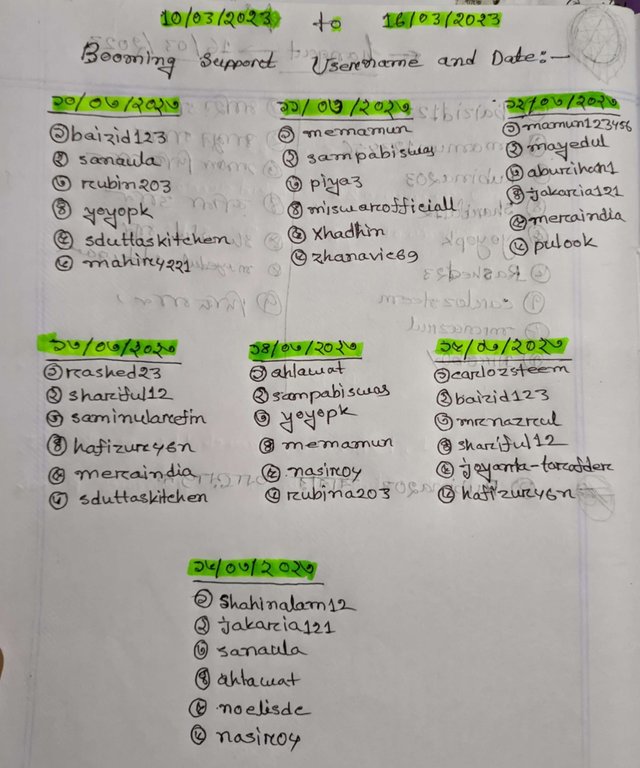 10/03/2023 to 16/03/2023
Booming Support Username and Date:-
১০/০৩/২০২৩
১ baizid123
২ sanaula
৩ rubin203
৪ yoyopk
৫ sduttaskitchen
৬ mahir4221
১১/০৩/২০২৩
১ memamun
২ sampabiswas
৩ piya3
৪ miswarofficiall
৫ xhadhin
৬ zhanavic69
১২/০৩/২০২৩
১ mamun123456
২ mayedul
৩ aburihan1
৪ jakaria121
৫ meraindia
৬ pulook
১৩/০৩/২০২৩
১ rashed23
২ shariful12
৩ saminularefin
৪ hafizur46n
৫ meraindia
৬ sduttaskitchen
১৪/০৩/২০২৩
১ ahlawat
২ sampabiswas
৩ yoyopk
৪ memamun
৫ nasir04
৬ rubina203
১৫/০৩/২০২৩
১ carlozsteem
২ baizid123
৩ mrnazrul
৪ shariful12
৫ joyanta-tarafder
৬ hafizur46n
১৬/০৩/২০২৩
১ Shahinalam12
২ jakaria121
৩ sanaula
৪ ahlawat
৫ noelisdc
৬ nasir04